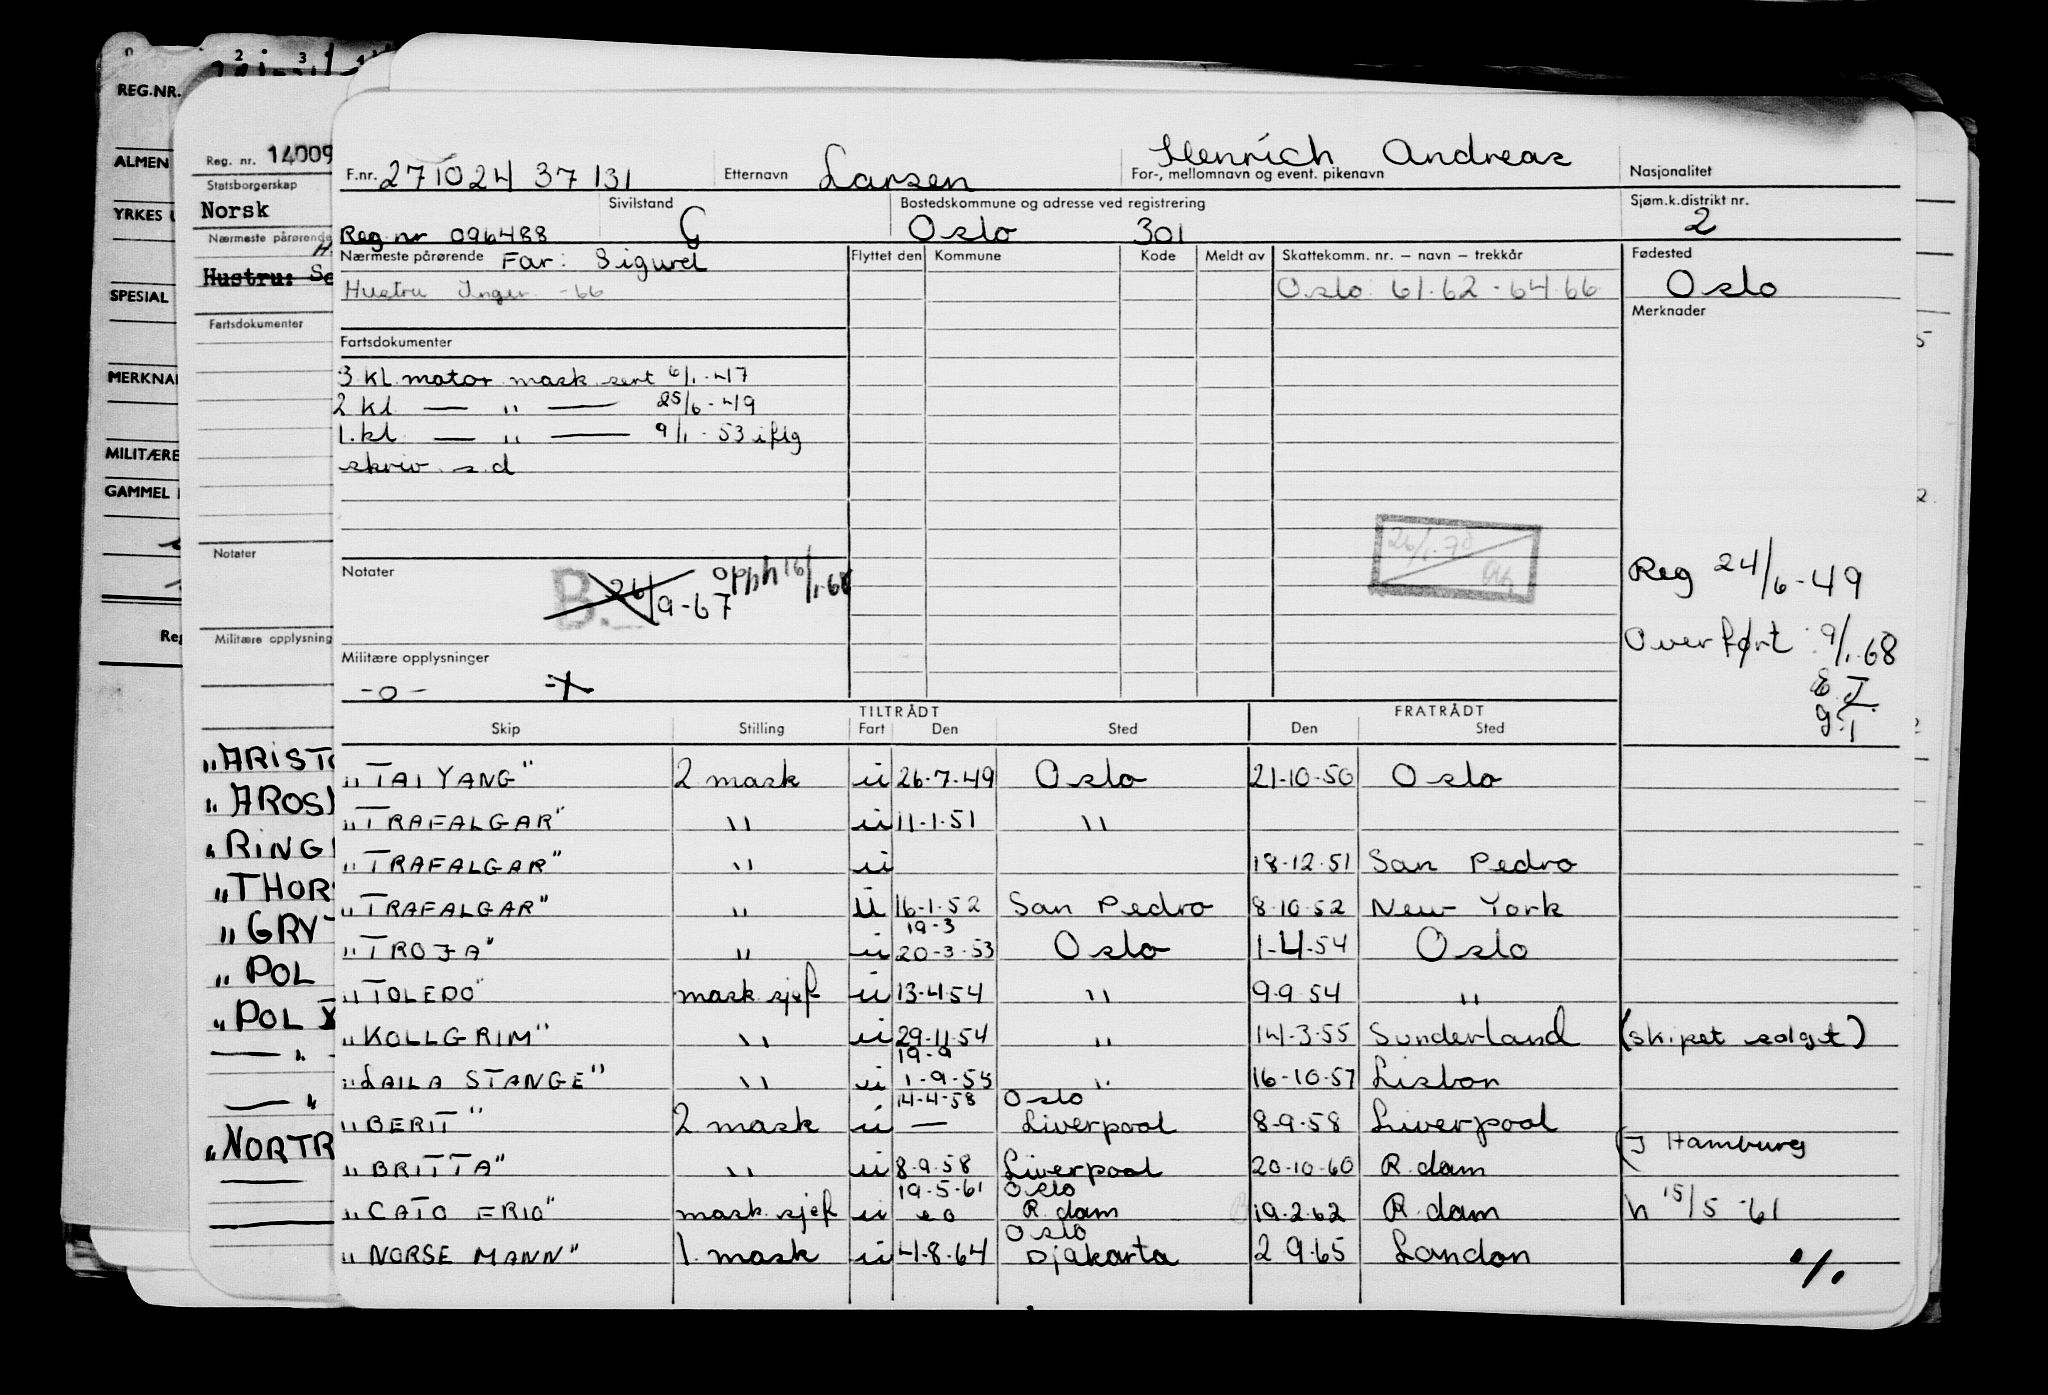 2 3
REG.NR.
ALMEN
YRKES
SPECIAL
MERKNA
MILITÆRE
GAMMEL
Reg
Reg. nr. 14009
Statsborgerskap
Norsk
Nærmeste pårørende
Hustru:
Fartsdokumenter
Notater
Militære opplysning
„ARISTO
„AROS
„RING
„THOR
„GRY
„POL
„POL
— „ —
— „
„NORTR
F.nr. 271024 37131 Etternavn Larsen Henrich Andreas
For-, mellomnavn og event. pikenavn Nasjonalitet
Sivilstand Bostedskommune og adresse ved registrering Sjøm.k.distrikt nr.
Reg nr 096488 G Oslo 301 2
Nærmeste pårørende Far: Sigurd Flyttet den Kommune Kode Meldt av Skattekomm. nr. – navn – trekkår Fødested
Hustru Inger -66 Oslo: 61.62-64.66 Oslo
Merknader
Fartsdokumenter
3 kl. motor mask sert 6/1-47
2 kl — „ — 25/6-49
1. kl — „ — 9/1-53 iflg
skriv s.d
26/1.78
Notater B. 26/9-67 opph 16/1.68
Reg 24/6-49
Overført: 9/1.68
Militære opplysninger
-o-
TILTRÅDT FRATRÅDT
Skip Stilling Fart Den Sted Den Sted
„TAI YANG" 2 mask ii 26-7-49 Oslo 21-10-50 Oslo
„TRAFALGAR" „ ii 11-1-51 „
„TRAFALGAR" „ ii 18-12-51 San Pedro
„TRAFALGAR" „ ii 16-1-52 San Pedro 8-10-52 New York
19-3
„TROJA" „ ii 20-3-53 Oslo 1-4-54 Oslo
„TOLEDO" mask sjef ii 13-4-54 „ 9-9 54 „
„KOLLGRIM" „ ii 29-11-54 „ 14-3-55 Sunderland (skipet solgt)
19-9
„LAILA STANGE" „ ii 1-9-55 „ 16-10-57 Lisbon
14-4-58 Oslo
„BERIT" 2 mask ii — Liverpool 8-9-58 Liverpool
Hamburg
„BRITTA" „ ii 8-9-58 Liverpool 20-10-60 R.dam
19-5-61 Oslo
„CATO FRIO" mask sjef ii eo R.dam 19-2-62 R.dam h 15/5-61
Oslo
„NORSE MANN" 1. mask ii 4-8-64 Djakarta 2 9-65 London
·/.